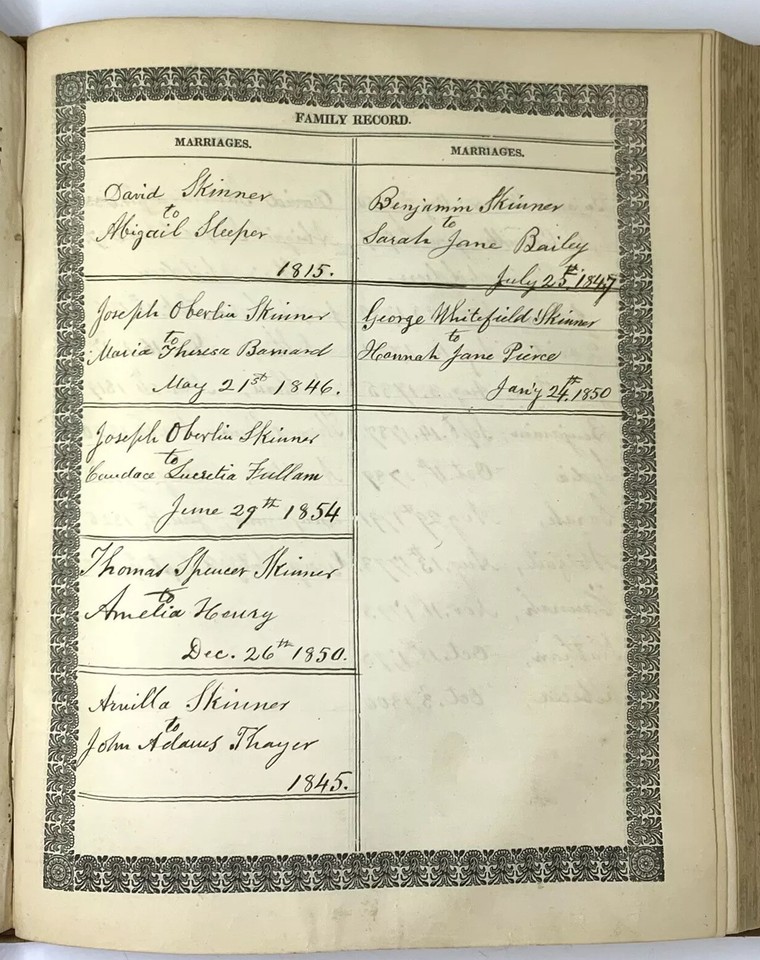 FAMILY RECORD.
MARRIAGES.
David Skinner
to
Abigail Sleeper
1815.
Joseph Oberlin Skinner
to
Maria Theresa Barnard
May 21st 1846.
Joseph Oberlin Skinner
to
Candace Lucretia Fullam
June 29th 1854
Thomas Spencer Skinner
to
Amelia Henry
Dec. 26th 1850.
Arvilla Skinner
to
John Adams Thayer
1845.
MARRIAGES.
Benjamin Skinner
to
Sarah Jane Bailey
July 25th 1847
George Whitefield Skinner
to
Hannah Jane Pierce
Jan'y 24th. 1850